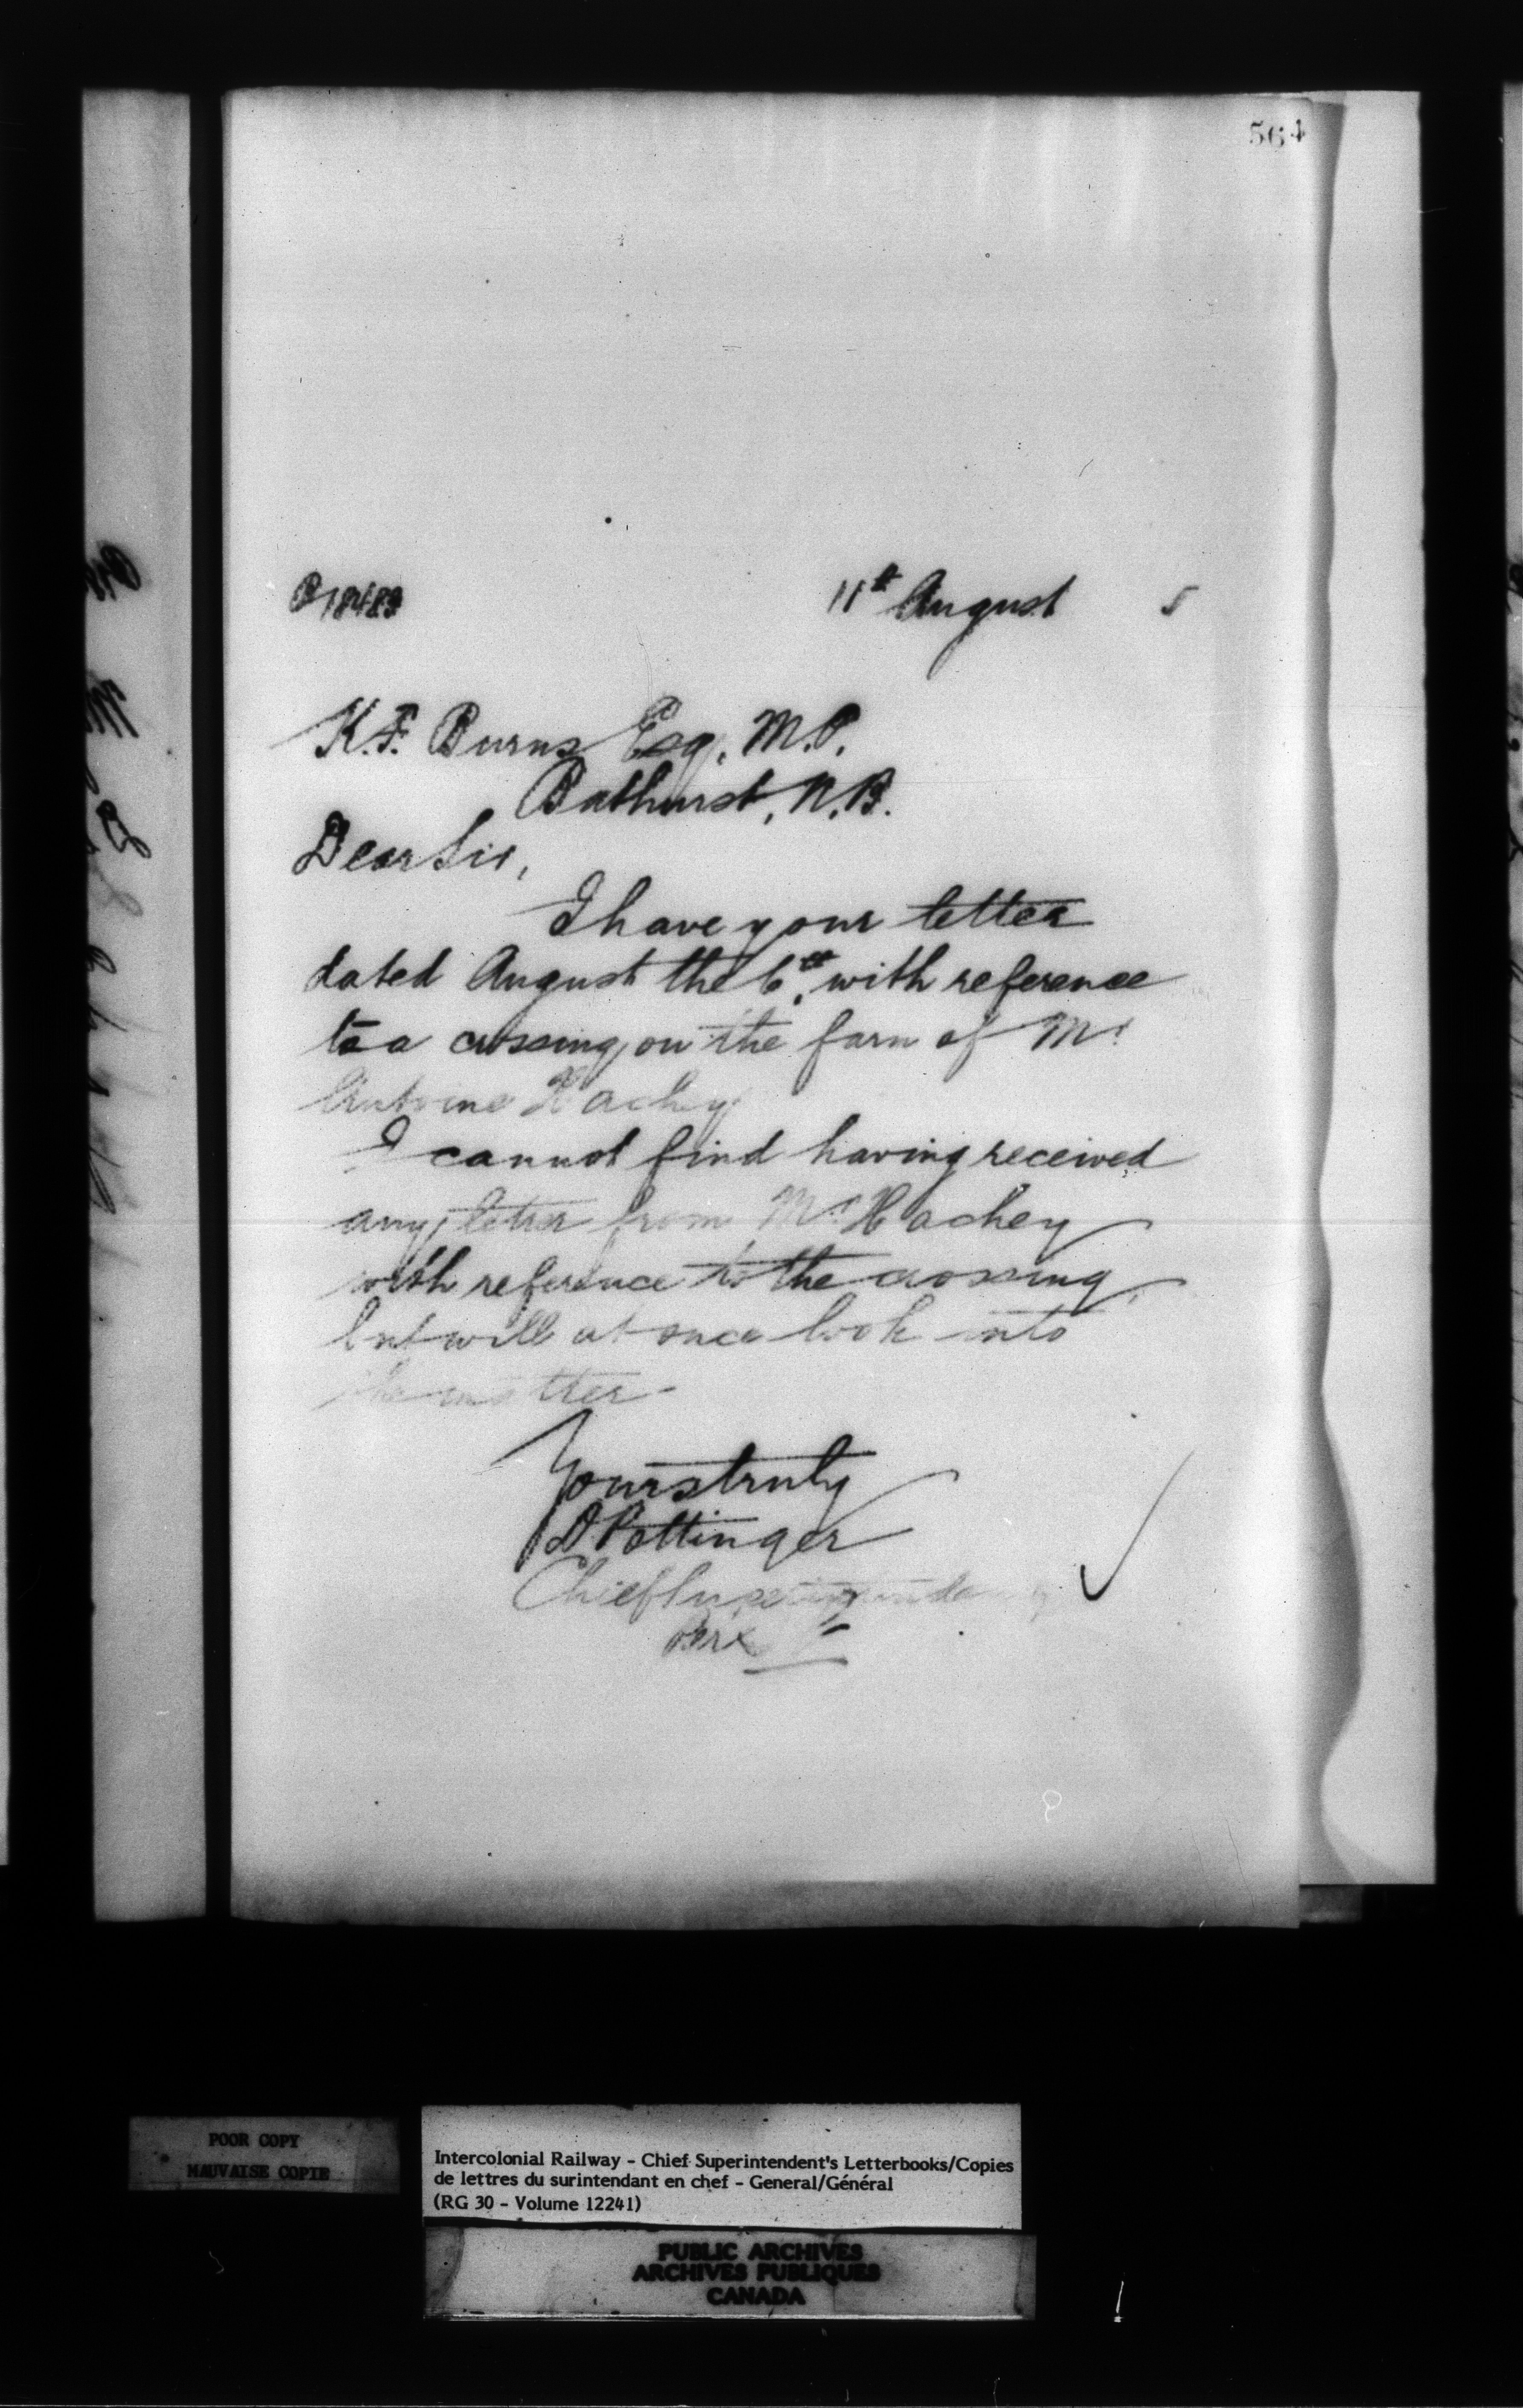 564
11th August 5
K.F. Burns Esq, M.P.
Bathurst, N.B.
Dear Sir,
I have your letter
dated August the 6th, with reference
to a crossing on the farm of Mr
Antoine Hachey
I cannot find having received
any letter from Mr Hachey
with reference to the crossing,
but will at once look into
the matter.
Yours truly
D Pottinger
Chief Superintendent
POOR COPY
MAUVAISE COPIE
Intercolonial Railway - Chief Superintendent's Letterbooks/Copies
de lettres du surintendant en chef - General/Général
(RG 30 - Volume 12241)
PUBLIC ARCHIVES
ARCHIVES PUBLIQUES
CANADA